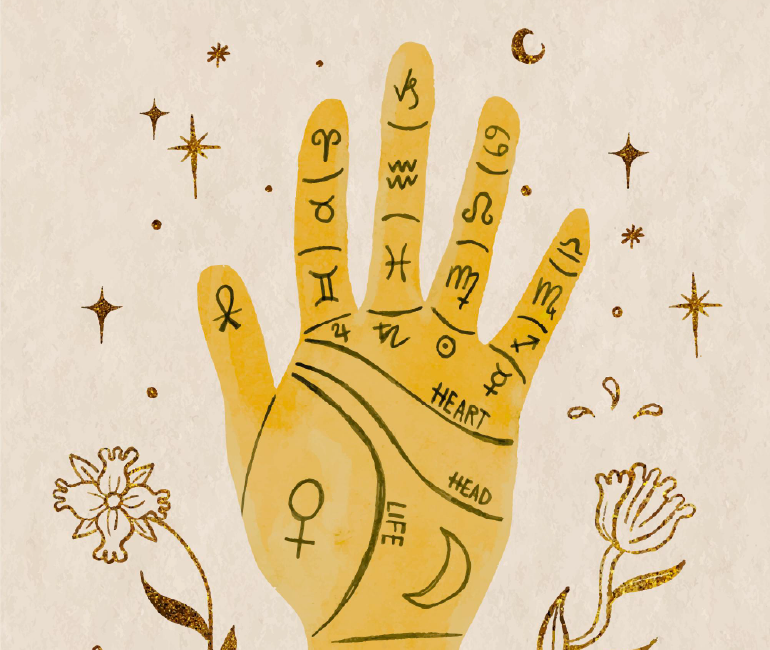 HEART
HEAD
LIFE